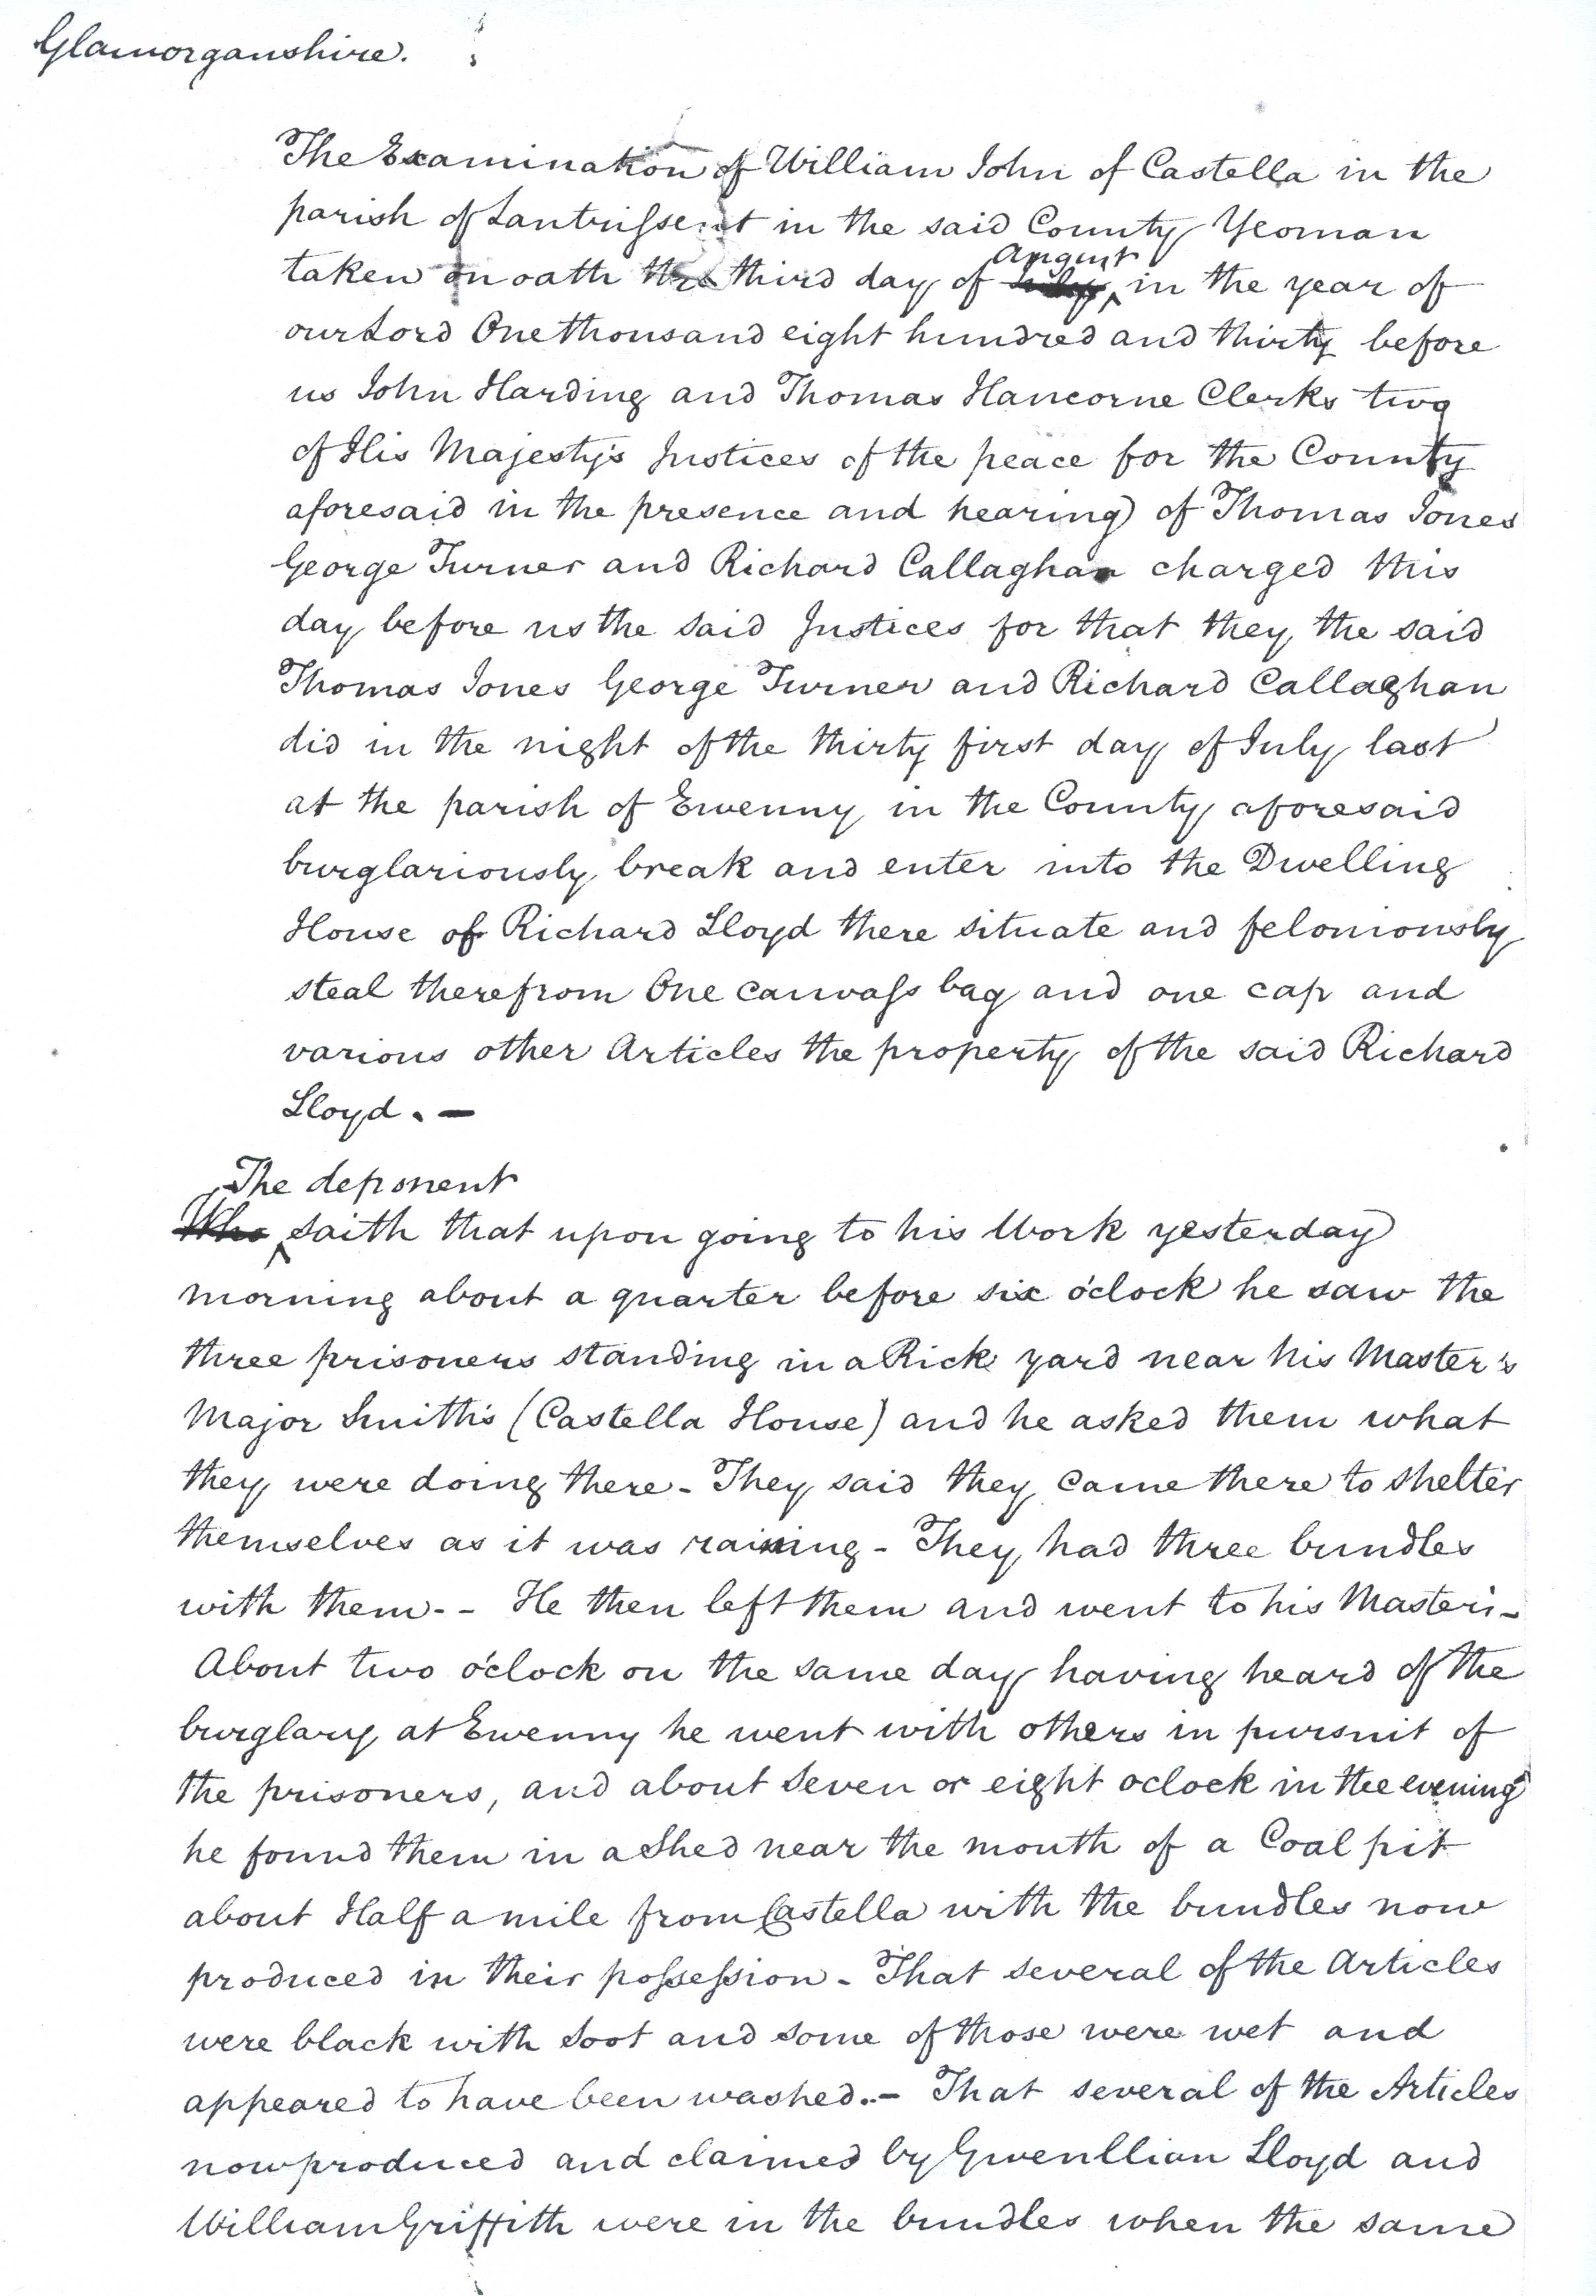 Glamorganshire.
The Examination of William John of Castella in the
parish of Lantrifsent in the said County Yeoman
August
taken on oath the third day of July in the year of
our Lord One thousand eight hundred and thirty before
us John Harding and Thomas Hancorne Clerks two
of His Majesty's Justices of the peace for the County
aforesaid in the presence and hearing of Thomas Jones
George Turner and Richard Callaghan charged this
day before us the said Justices for that they the said
Thomas Jones George Turner and Richard Callaghan
did in the night of the thirty first day of July last
at the parish of Ewenny in the County aforesaid
burglariously break and enter into the Dwelling
House of Richard Lloyd there situate and feloniously
steal therefrom One canvafs bag and one cap and
various other Articles the property of the said Richard
Lloyd. —
The deponent
Who saith that upon going to his Work yesterday
morning about a quarter before six o'clock he saw the
three prisoners standing in a Rick yard near his Master's
Major Smith's (Castella House) and he asked them what
they were doing there - They said they came there to shelter
themselves as it was raining - They had three bundles
with them. - He then left them and went to his Master's -
About two o'clock on the same day having heard of the
burglary at Ewenny he went with others in pursuit of
the prisoners, and about seven or eight oclock in the evening
he found them in a Shed near the mouth of a Coal pit
about Half a mile from Castella with the bundles now
produced in their pofsefsion - That several of the Articles
were black with Soot and some of those were wet and
appeared to have been washed. - That several of the Articles
now produced and claimed by Gwenllian Lloyd and
William Griffith were in the bundles when the same